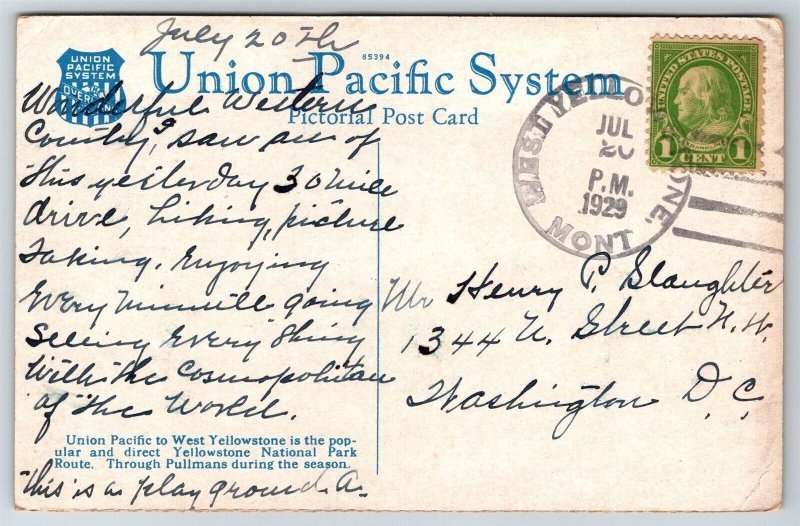 July 20th
65394
UNION
PACIFIC
SYSTEM
OVERLAND
Union Pacific System
Pictorial Post Card
Wonderful Western
Country, saw all of
this yesterday 30 mile
drive, hiking, picture
taking. Enjoying
Every Minnute going
Seeing Every thing
With the Cosmopolitan
of the World.
Union Pacific to West Yellowstone is the pop-
ular and direct Yellowstone National Park
Route. Through Pullmans during the season.
This is a play ground. A.
WEST YELLOWSTONE, MONT
JUL
20
P.M.
1929
UNITED STATES POSTAGE
FRANKLIN
1 CENT 1
Mr Henry P. Slaughter
1344 U. Street N.W.
Washington D.C.